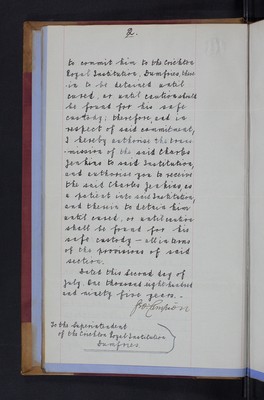 2.
to commit him to the Crichton
Royal Institution, Dumfries, there
in to be detained until
cured, or until caution shall
be found for his safe
custody; therefore, and in
respect of said commitment,
I hereby authorise the trans-
mission of the said Charles
Jenkins to said Institution,
and authorise you to receive
the said Charles Jenkins as
a patient into said Institution,
and therein to detain him
until cured, or until caution
shall be found for his
safe custody - all in terms
of the provisions of said
section.
Dated this second day of
July One thousand eight hundred
and ninety five years. -
To the Superintendent
of the Crichton Royal Institution
Dumfries